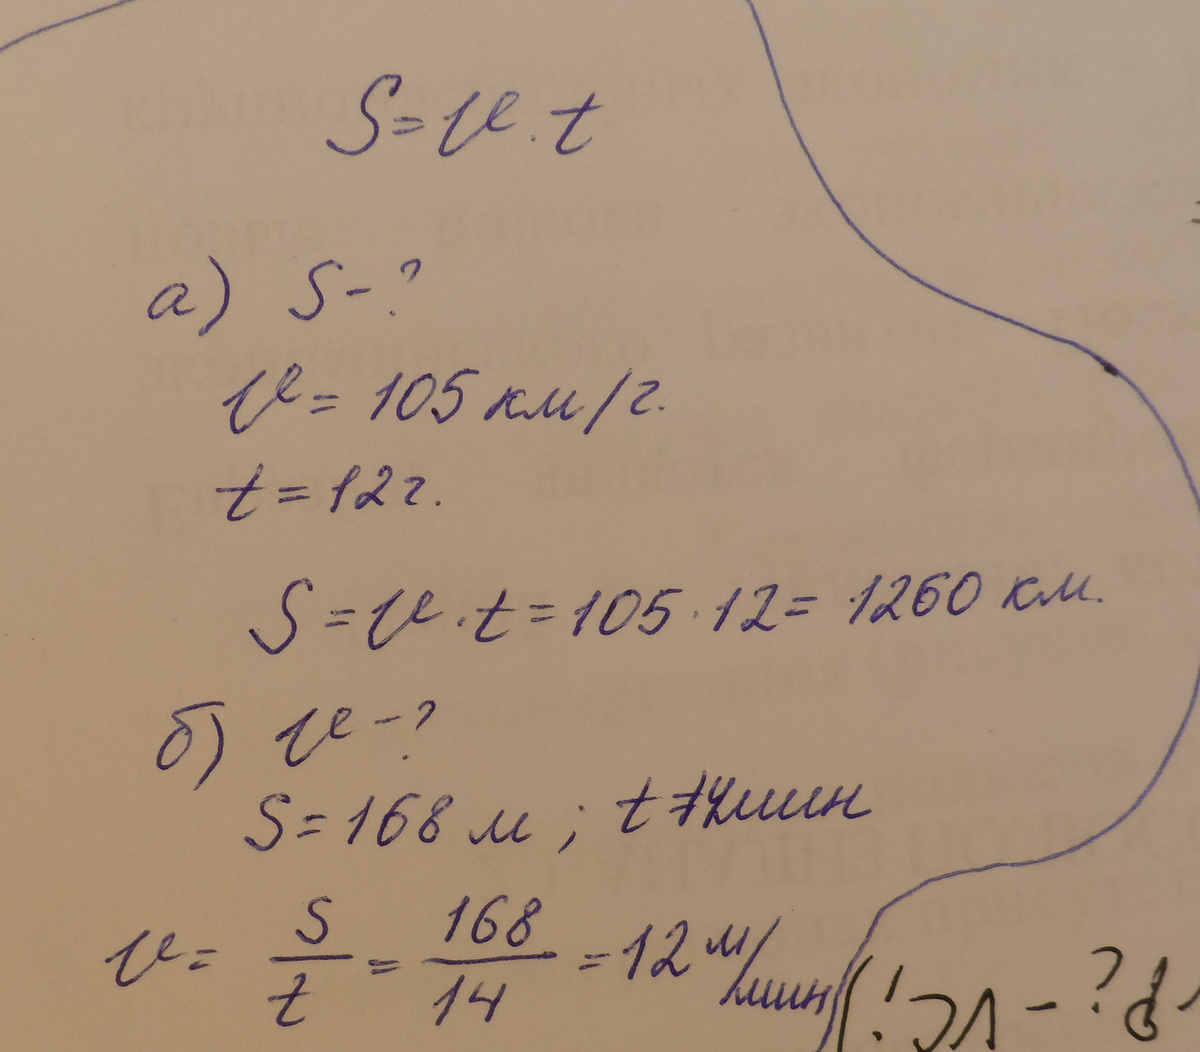 S = v · t
а) S - ?
v = 105 км/г.
t = 12 г.
S = v · t = 105 · 12 = 1260 км.
б) v - ?
S = 168 м ; t = 14 мин
v = S/t = 168/14 = 12 м/мин